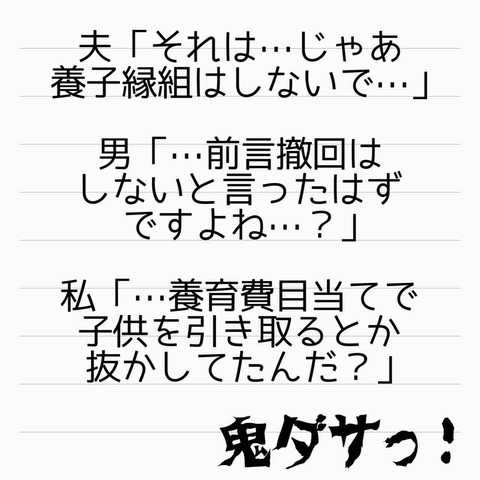 夫「それは…じゃあ
養子縁組はしないで…」
男「…前言撤回は
しないと言ったはず
ですよね…？」
私「…養育費目当てで
子供を引き取るとか
抜かしてたんだ？」
鬼ダサっ！